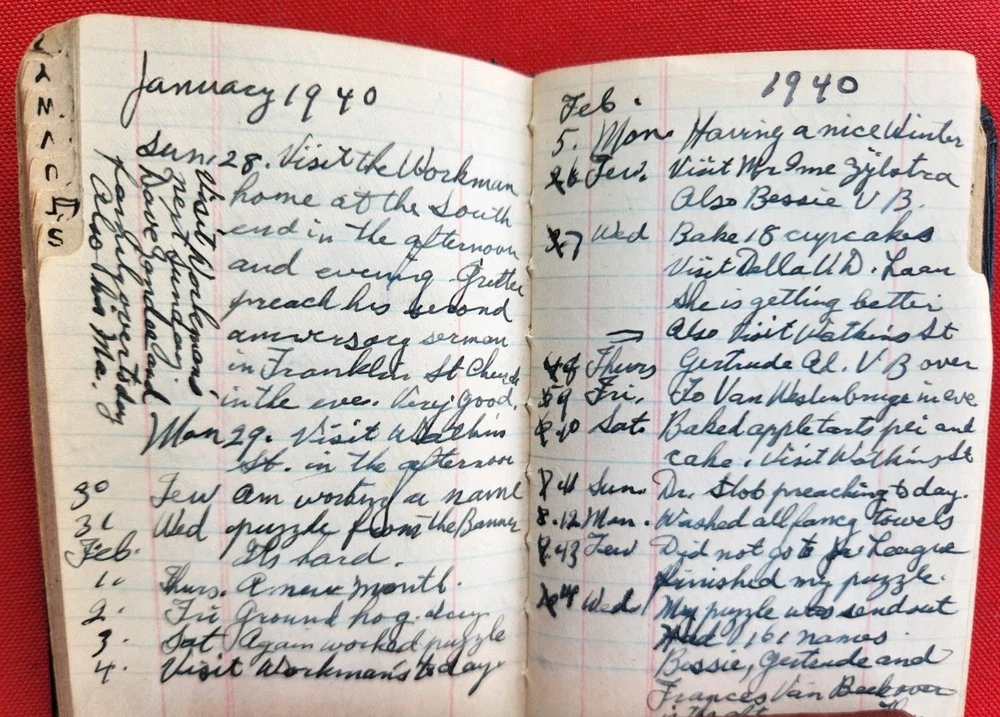 January 1940
Sun. 28. Visit the Workman
home at the South
end in the afternoon
and evening Gritter
preach his second
anniversary sermon
in Franklin St Church
in the eve. Very good.
Visit Workmans
next Sunday.
Dave Jonder and
family over today
Also this Ma.
Mon 29. Visit Watkins
St. in the afternoon
30 Tew am working a name
31 Wed puzzle from the Banner
Feb. Its hard.
1. Thurs. A new month.
2. Fri Ground hog day
3. Sat Again worked puzzle
4. Visit Workman's today
1940
Feb.
5. Mon. Having a nice Winter
6 Tew. Visit Mr & me Zylstra
Also Bessie V B.
7 Wed Bake 18 cupcakes
Visit Della V D. Laan
She is getting better
Also Visit Watkins St
8 Thurs Gertrude Al. V B over
9 Fri. To Van Westenbrugge in eve
10 Sat. Baked apple tarts pei and
cake. Visit Watkins St
11 Sun. Dr. Slob preaching today.
12 Mon. Washed all fancy towels
13 Tew Did not go to Jr. League
finished my puzzle.
14 Wed My puzzle was send out
Had 161 names.
Bessie, Gertrude and
Frances Van Beek over